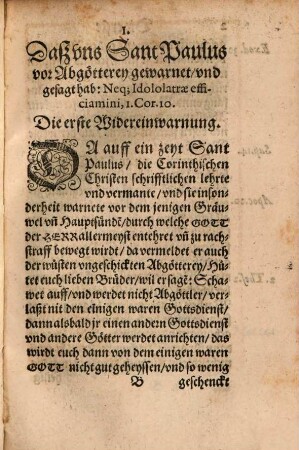 1.
Daß vns Sant Paulus
vor Abgötterey gewarnet/vnd
gesagt hab: Neq; Idololatræ effi-
ciamini, 1. Cor. 10.
Die erste Widereinwarnung.
DA auff ein zeyt Sant
Paulus/ die Corinthischen
Christen schrifftlichen lehrte
vnd vermante/ vnd sie inson-
derheit warnete vor dem jenigen Gräu-
wel vñ Hauptsündẽ/durch welche GOTT
der HERR allermeyst entehret vñ zu rach-
straff bewegt wirdt/ da vermeldet er auch
der wüsten vngeschickten Abgötterey/Hü-
tet euch lieben Brüder/wil er sagẽ: Scha-
wet auff/vnd werdet nicht Abgöttler/ ver-
laßt nit den einigen waren Gottsdienst/
dann alsbald jr einen andern Gottsdienst
vnd andere Götter werdet anrichten/ das
wirdt euch dann von dem einigen waren
GOTT nicht gut geheyssen/ vnd so wenig
B geschenckt